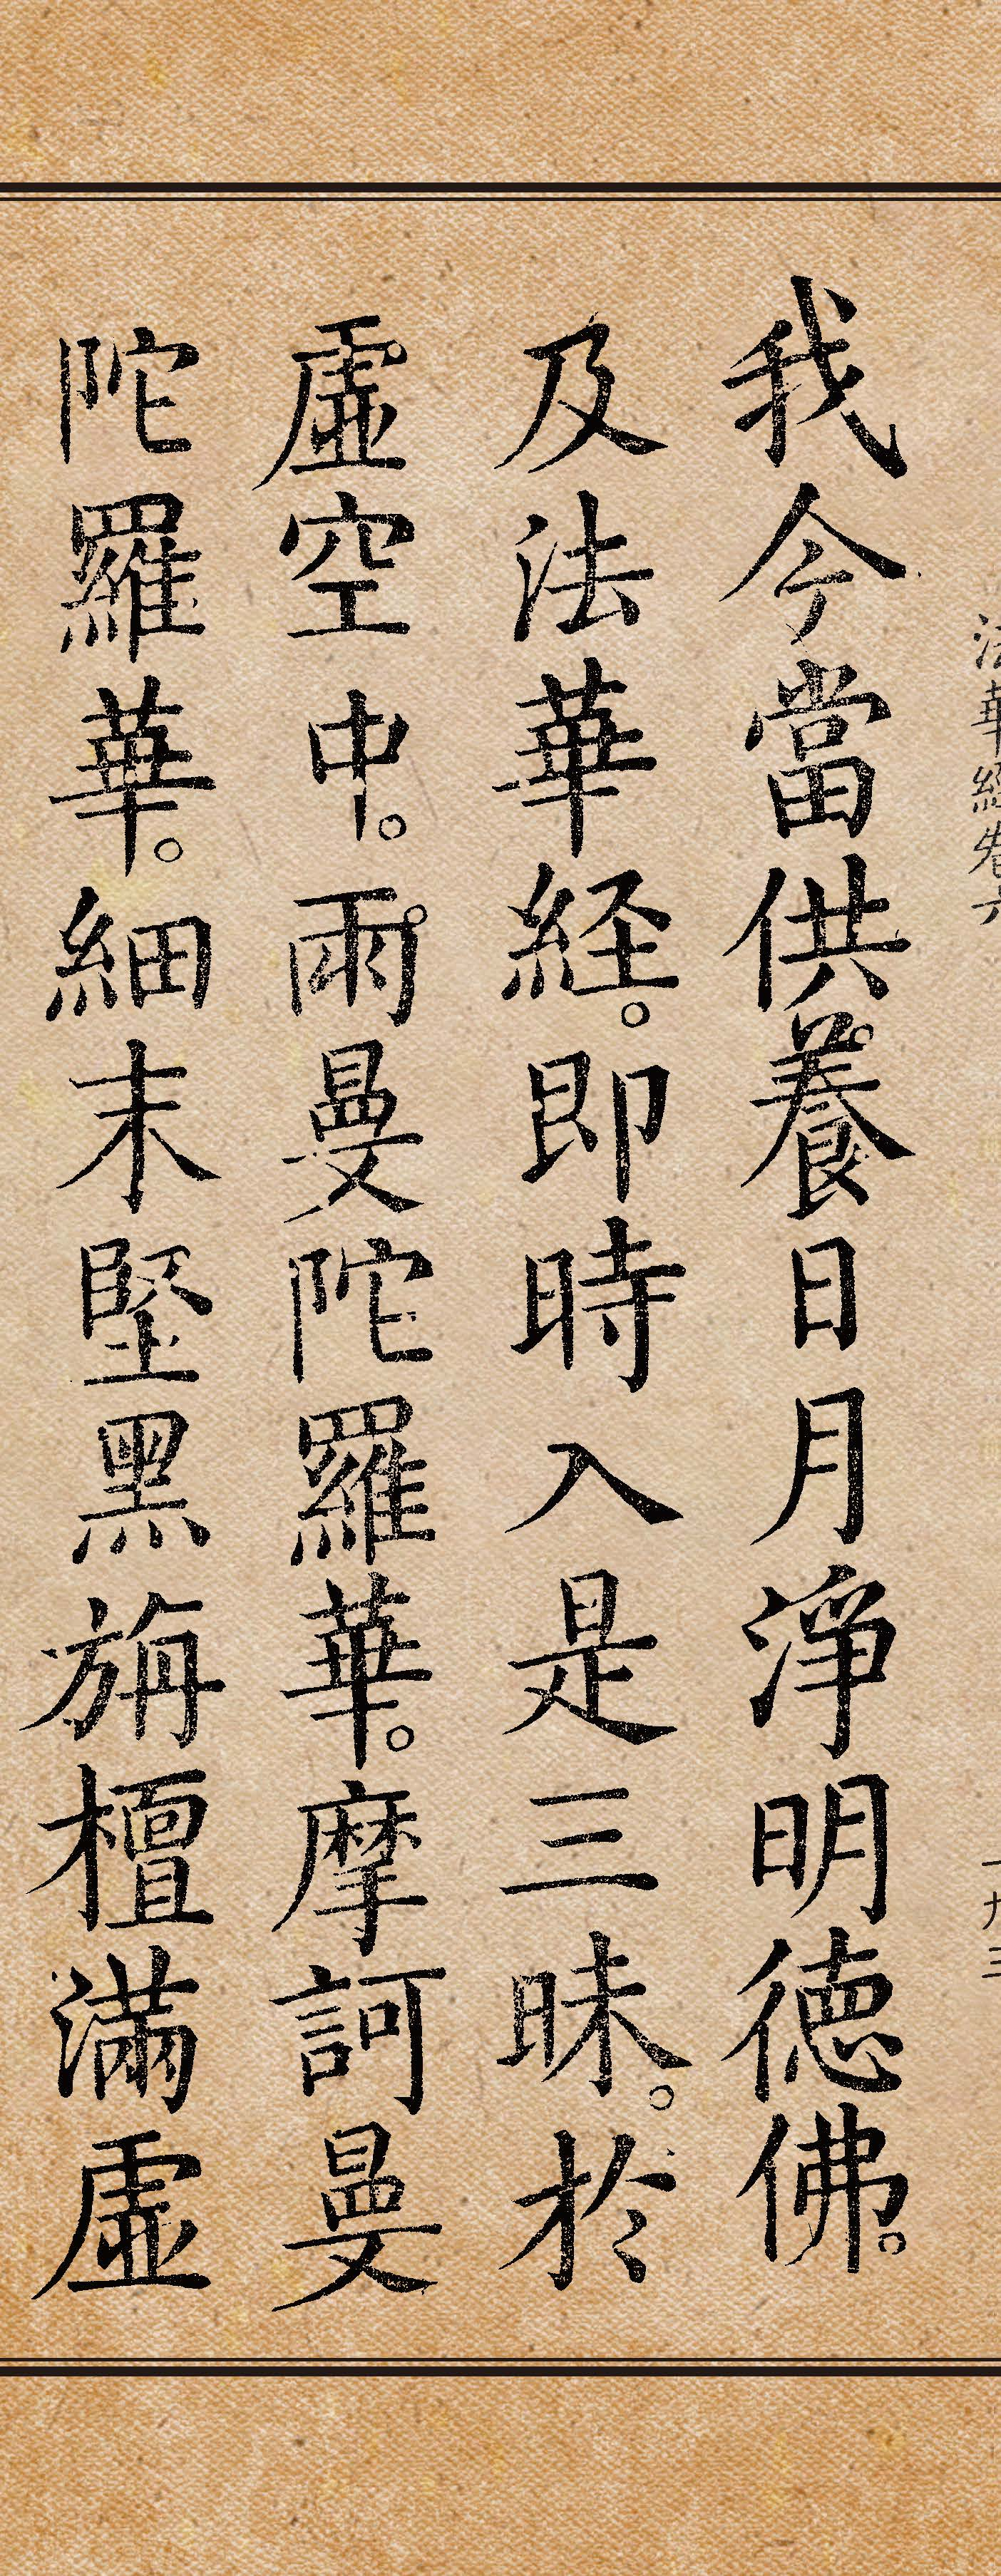 法華經卷六
十九三
我今當供養日月淨明德佛。
及法華経。即時入是三昧。於
虛空中。雨曼陀羅華。摩訶曼
陀羅華。細末堅黑旃檀滿虛